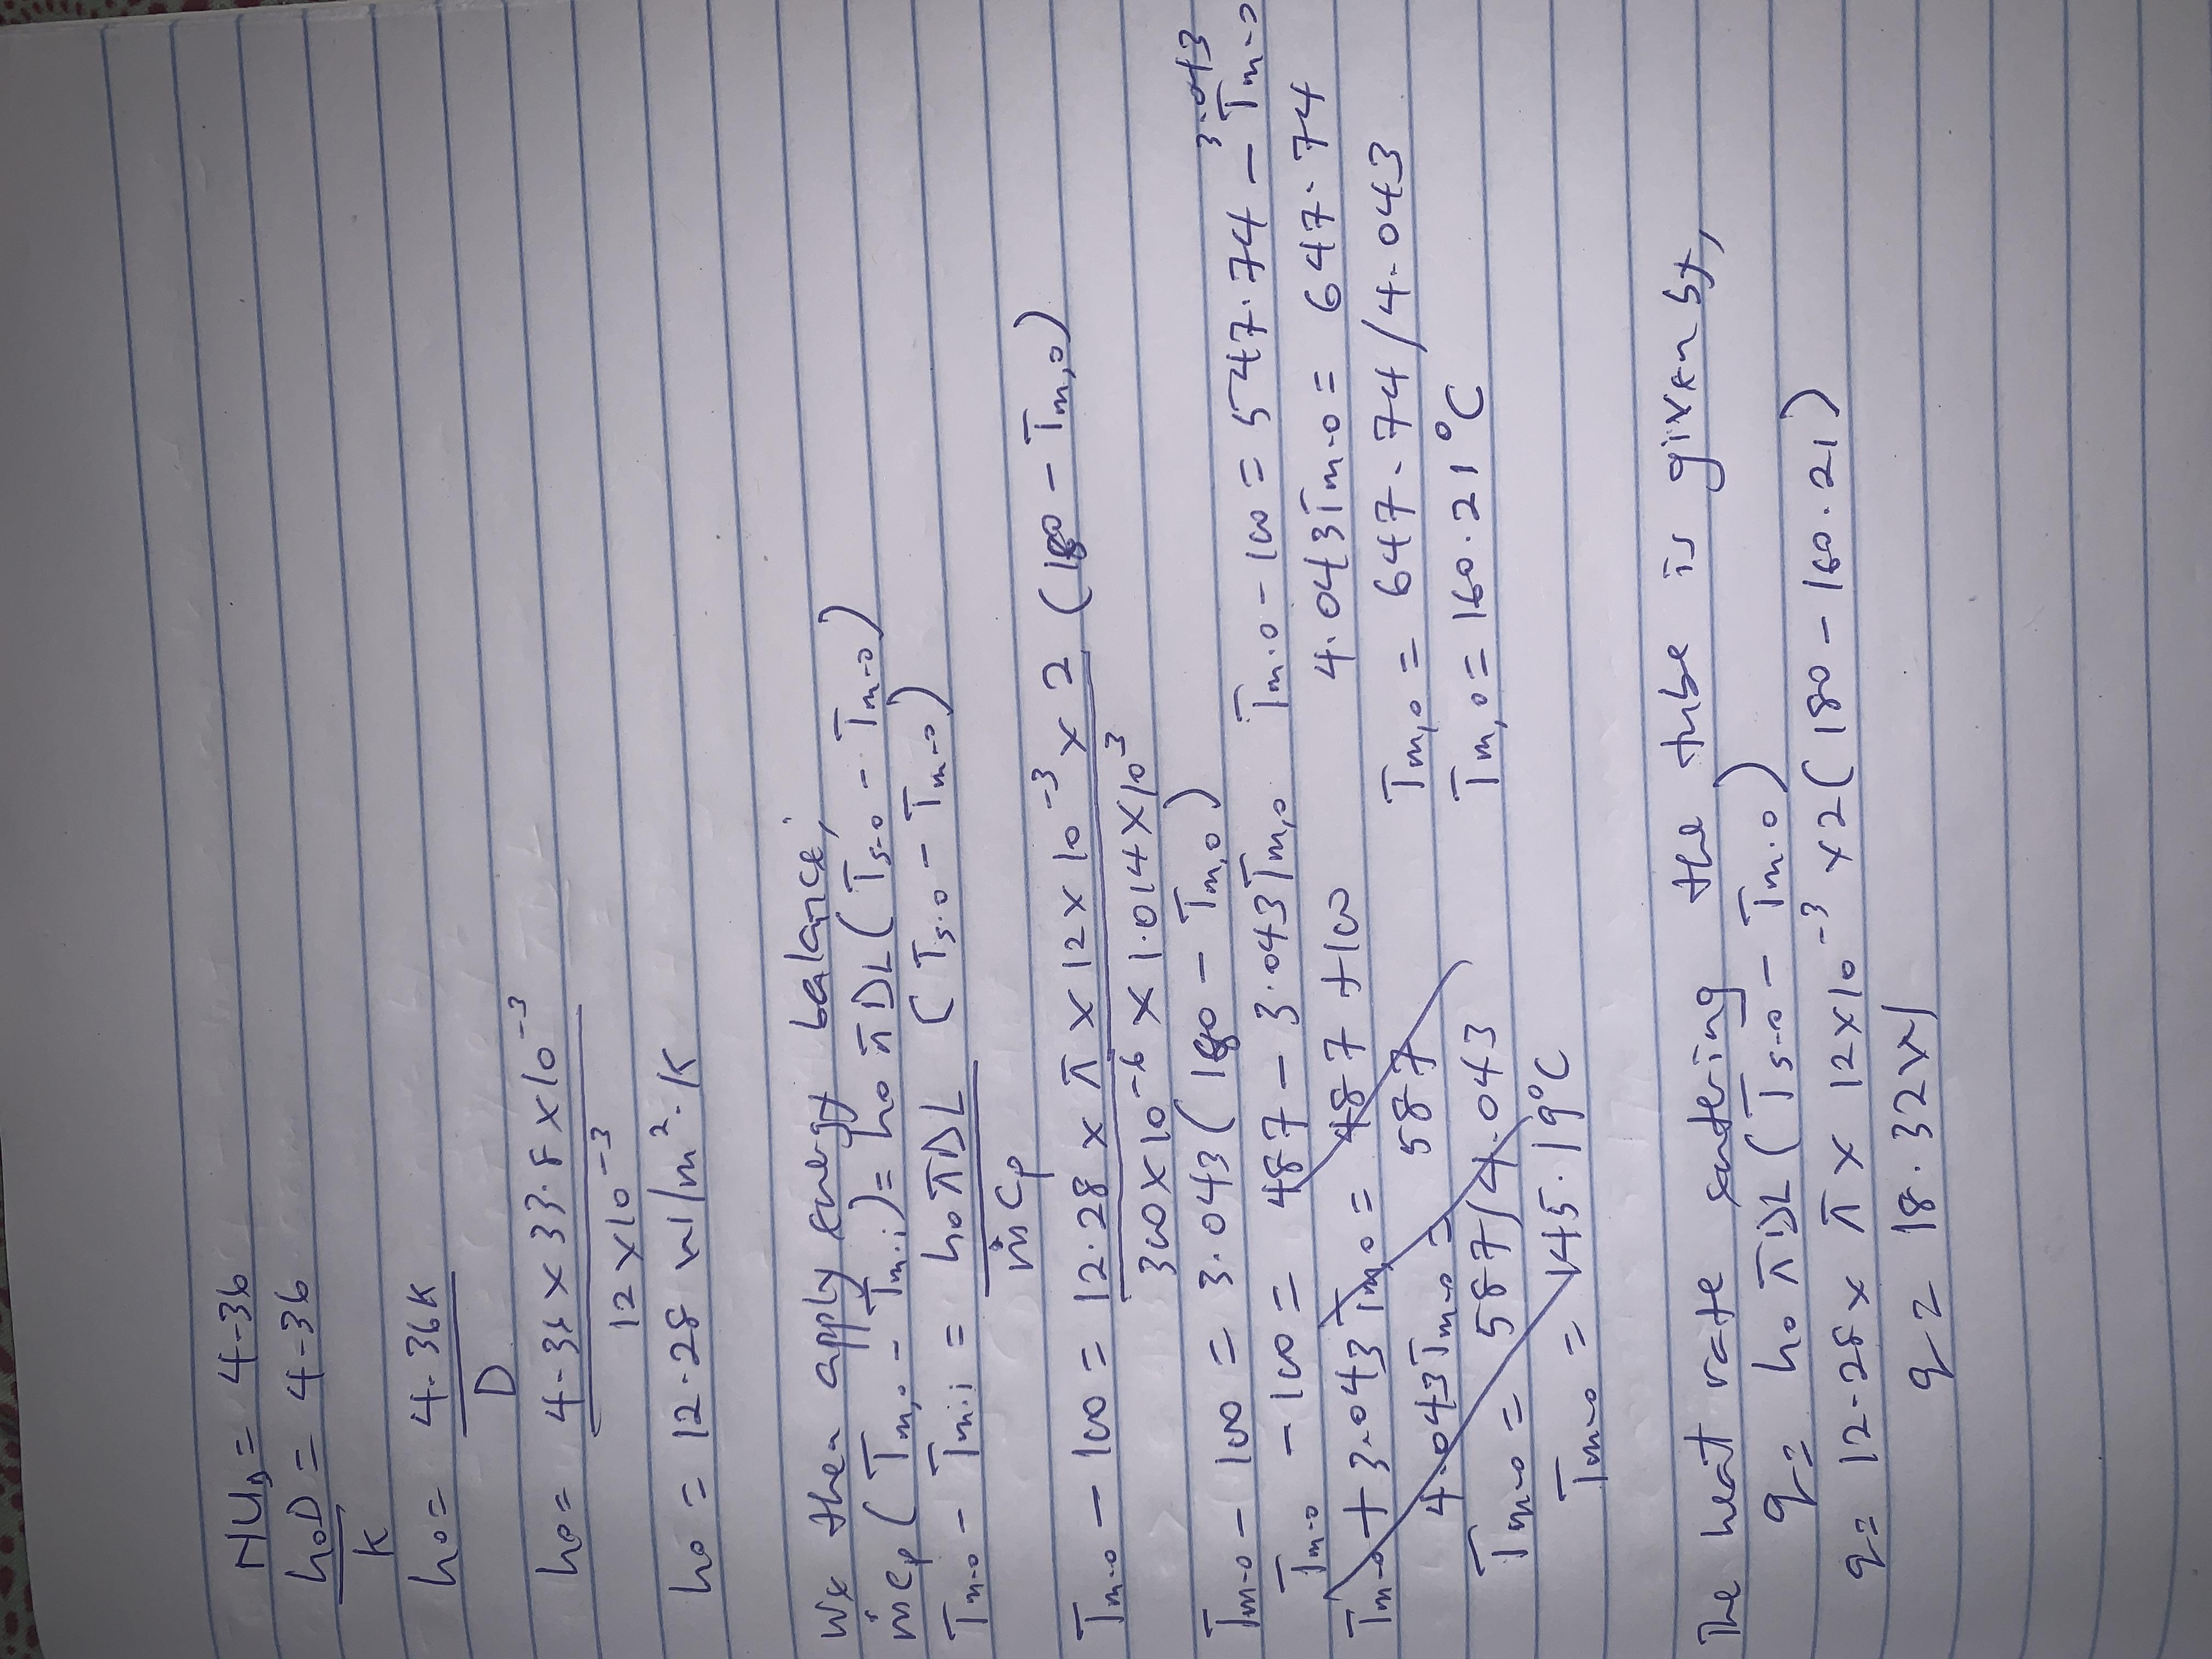 NU_D = 4.36
h₀D/K = 4.36
h₀ = 4.36K/D
h₀ = 4.36 × 33.8 × 10⁻³ / 12 × 10⁻³
h₀ = 12.28 W/m².K
We then apply energy balance;
ṁCp(Tm,o - Tm,i) = h₀πDL(Ts,o - Tm,o)
Tm,o - Tm,i = h₀πDL/ṁCp (Ts,o - Tm,o)
Tm,o - 100 = 12.28 × π × 12 × 10⁻³ × 2 / 300 × 10⁻⁶ × 1.014 × 10³ (180 - Tm,o)
Tm,o - 100 = 3.043(180 - Tm,o)
Tm,o - 100 = 487 - 3.043Tm,o
Tm,o + 3.043Tm,o = 487 + 100
4.043Tm,o = 587
Tm,o = 587/4.043
Tm,o = 145.19°C
Tm,o - 100 = 547.74 - 3.043Tm,o
4.043Tm,o = 647.74
Tm,o = 647.74/4.043
Tm,o = 160.21°C
The heat rate entering the tube is given by,
q = h₀πDL(Ts,o - Tm,o)
q = 12.28 × π × 12 × 10⁻³ × 2(180 - 160.21)
q = 18.32W